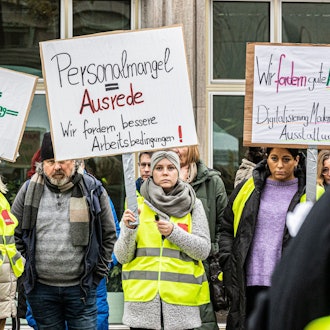 Personalmangel
=
Ausrede
Wir fordern bessere
Arbeitsbedingungen!
Wir fordern gute
Digitalisierung
Ausstattung